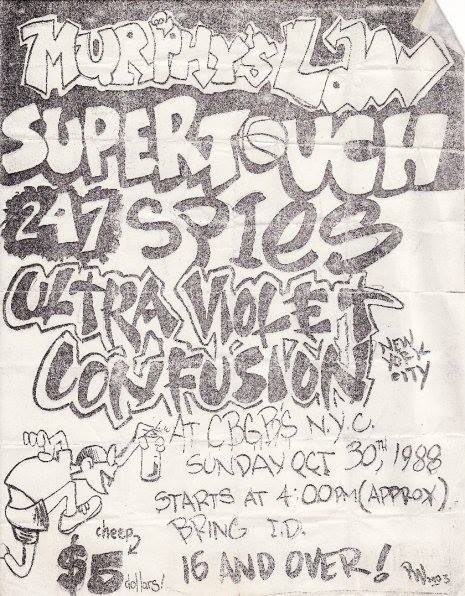 MURPHY'S LAW
SUPERTOUCH
24-7 SPIES
ULTRA VIOLET
CONFUSION
NEW
YORK
CITY
AT CBGB'S N.Y.C.
SUNDAY OCT 30TH, 1988
STARTS AT 4:00PM (APPROX)
BRING I.D.
cheep
$5 dollars!
16 AND OVER!